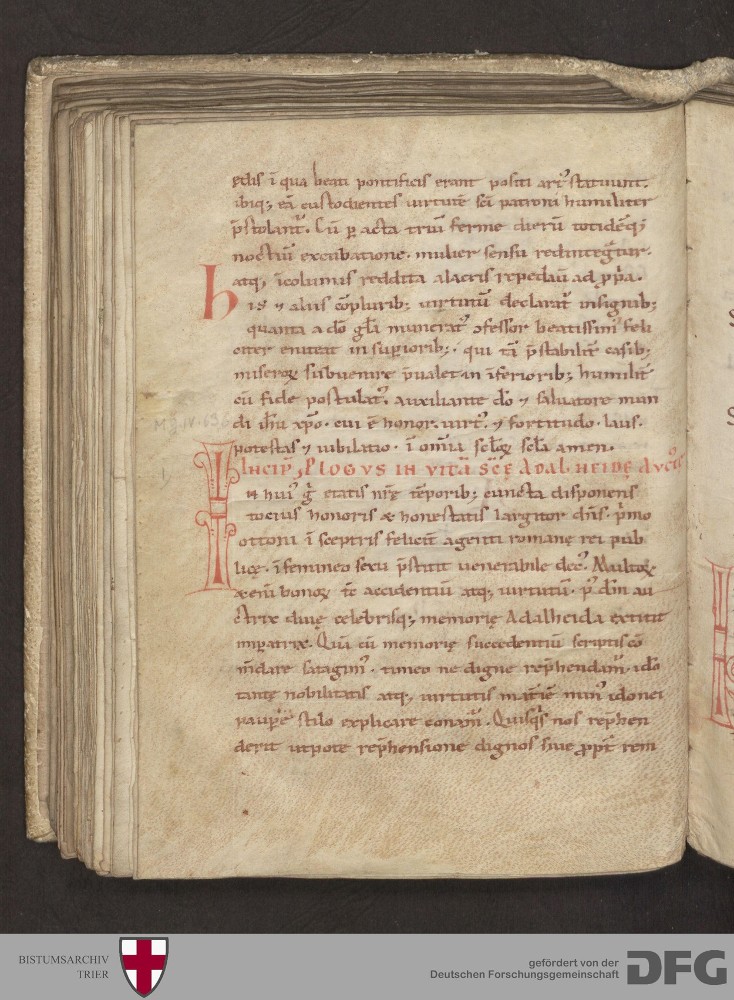 ędis ī qua beati pontificis erant positi art᷒ statuunt.
ibiq; eā custodientes uirtutē sc̄i patroni humiliter
p̄stolant᷒. Cū ꝑ acta triū ferme dierū totidēq;
noctiū excubatione. mulier sensu redintegrat᷒.
atq; īcolumis reddita alacris repedauit ad ꝓpria.
His & aliis cōpluribus uirtutū declarat᷒ insignib;
quanta a dō gl̄a munerat᷒ ɔfessor beatissim᷒ feli
citer eniteat in suꝑiorib;. qui tā p̄stabilit̄ casib;
miseroꝝ subuenire p̄ualet in īferiorib; humilit̄
cū fide postulat᷒. auxiliante dō & saluatore mun
di ihū xp̄o. cui ē honor. uirt᷒. & fortitudo. laus.
potestas & iubilatio. ī omīa sc̄loꝝ sc̄la amen.
INCIPIT PLOGVS IN VITĀ SC̄Ę ADALHEIDĘ AVG᷒TĘ
In hui᷒ gͥ etatis nr̄ę tēporib; cuncta disponens
tocius honoris & honestatis largitor dn̄s. p̄mo
ottoni ī sceptris felicit̄ agenti romanę rei pub
licę. ī femineo sexu p̄stitit uenerabile dec᷒. Multoꝝ
& enī bonoꝝ tc̄ accidentiū atq; uirtutū. p᷒ dm̄ au
ctrix diuę celebrisq; memorię Adalheida extitit
imꝑatrix. Quā cū memorię succedentiū scriptis cō
m̄dare satagim᷒. timeo ne digne rep̄hendam᷒. ido
tantę nobilitatis atq; uirtutis mat̄iē min᷒ idonei
pauꝑe stilo explicare conam᷒. Quisqͥs nos rep̄hen
derit utpote rep̄hensione dignos siue ꝓpt̄ rem
MG.IV.636
BISTUMSARCHIV
TRIER
gefördert von der
Deutschen Forschungsgemeinschaft
DFG